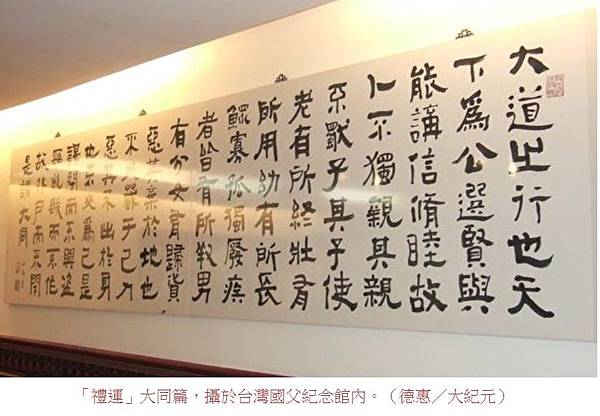 大道之行也天
下爲公選賢與
能講信脩睦故
人不獨親其親
不獨子其子使
老有所終壯有
所用幼有所長
鰥寡孤獨廢疾
者皆有所養男
有分女有歸貨
惡其棄於地也
不必藏于己力
惡其不出於身
也不必爲己是
謀閉而不興盜
竊亂賊而不作
故外戶而不閉
是謂大同
「禮運」大同篇，攝於台灣國父紀念館內。（德惠／大紀元）